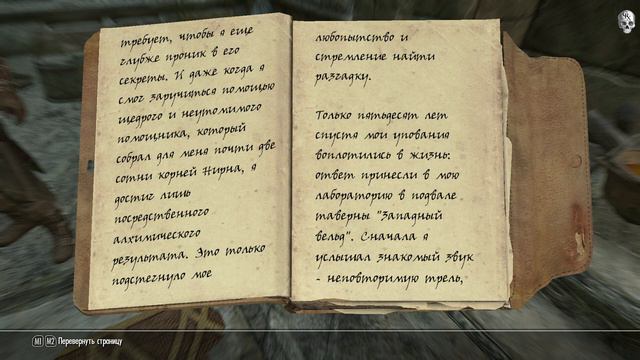 требует, чтобы я еще
глубже проник в его
секреты. И даже когда я
смог заручиться помощью
щедрого и неутомимого
помощника, который
собрал для меня почти две
сотни корней Нирна, я
достиг лишь
посредственного
алхимического
результата. Это только
подстегнуло мое
любопытство и
стремление найти
разгадку.
Только пятьдесят лет
спустя мои упования
воплотились в жизнь:
ответ принесли в мою
лабораторию в подвале
таверны "Западный
вельд". Сначала я
услышал знакомый звук
- неповторимую трель,
M1 M2 Перевернуть страницу